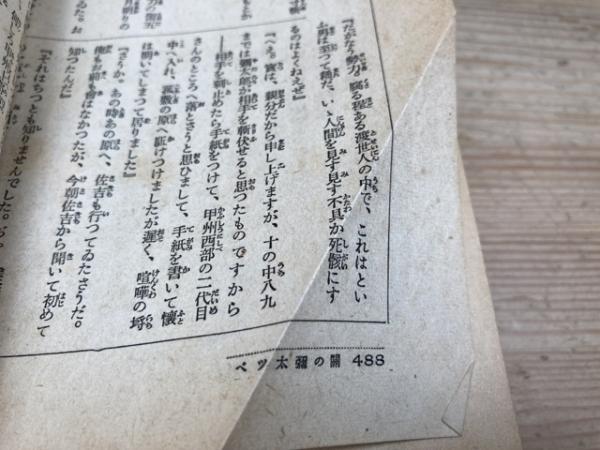 『だがなう勢力。腐る程ある渡世人の中で、これはとい
ふ男は至つて尠だ、いゝ人間を見す見す不具か死骸にす
るのはよくねえぜ』
『へえ。實は、親分だから申し上げますが、十の中八九
までは彌太郎が相手を斬伏せると思つたものですから
――相手を刺止めたら手紙をつけて、甲州西部の二代目
さんのところへ落とさうと思ひまして、手紙を書いて懷
中へ入れ、裏の原へ駈けつけましたが遲く、喧嘩の埒
は明いてしまつて居りました』
『さうか。あの時あの原へ、佐吉も行つてゐたさうだ。
俺もお前も會はなかつたが、今朝佐吉から聞いて初めて
知つたんだ』
『それはちつとも知りませんでした。
ベツ太彌の關 488